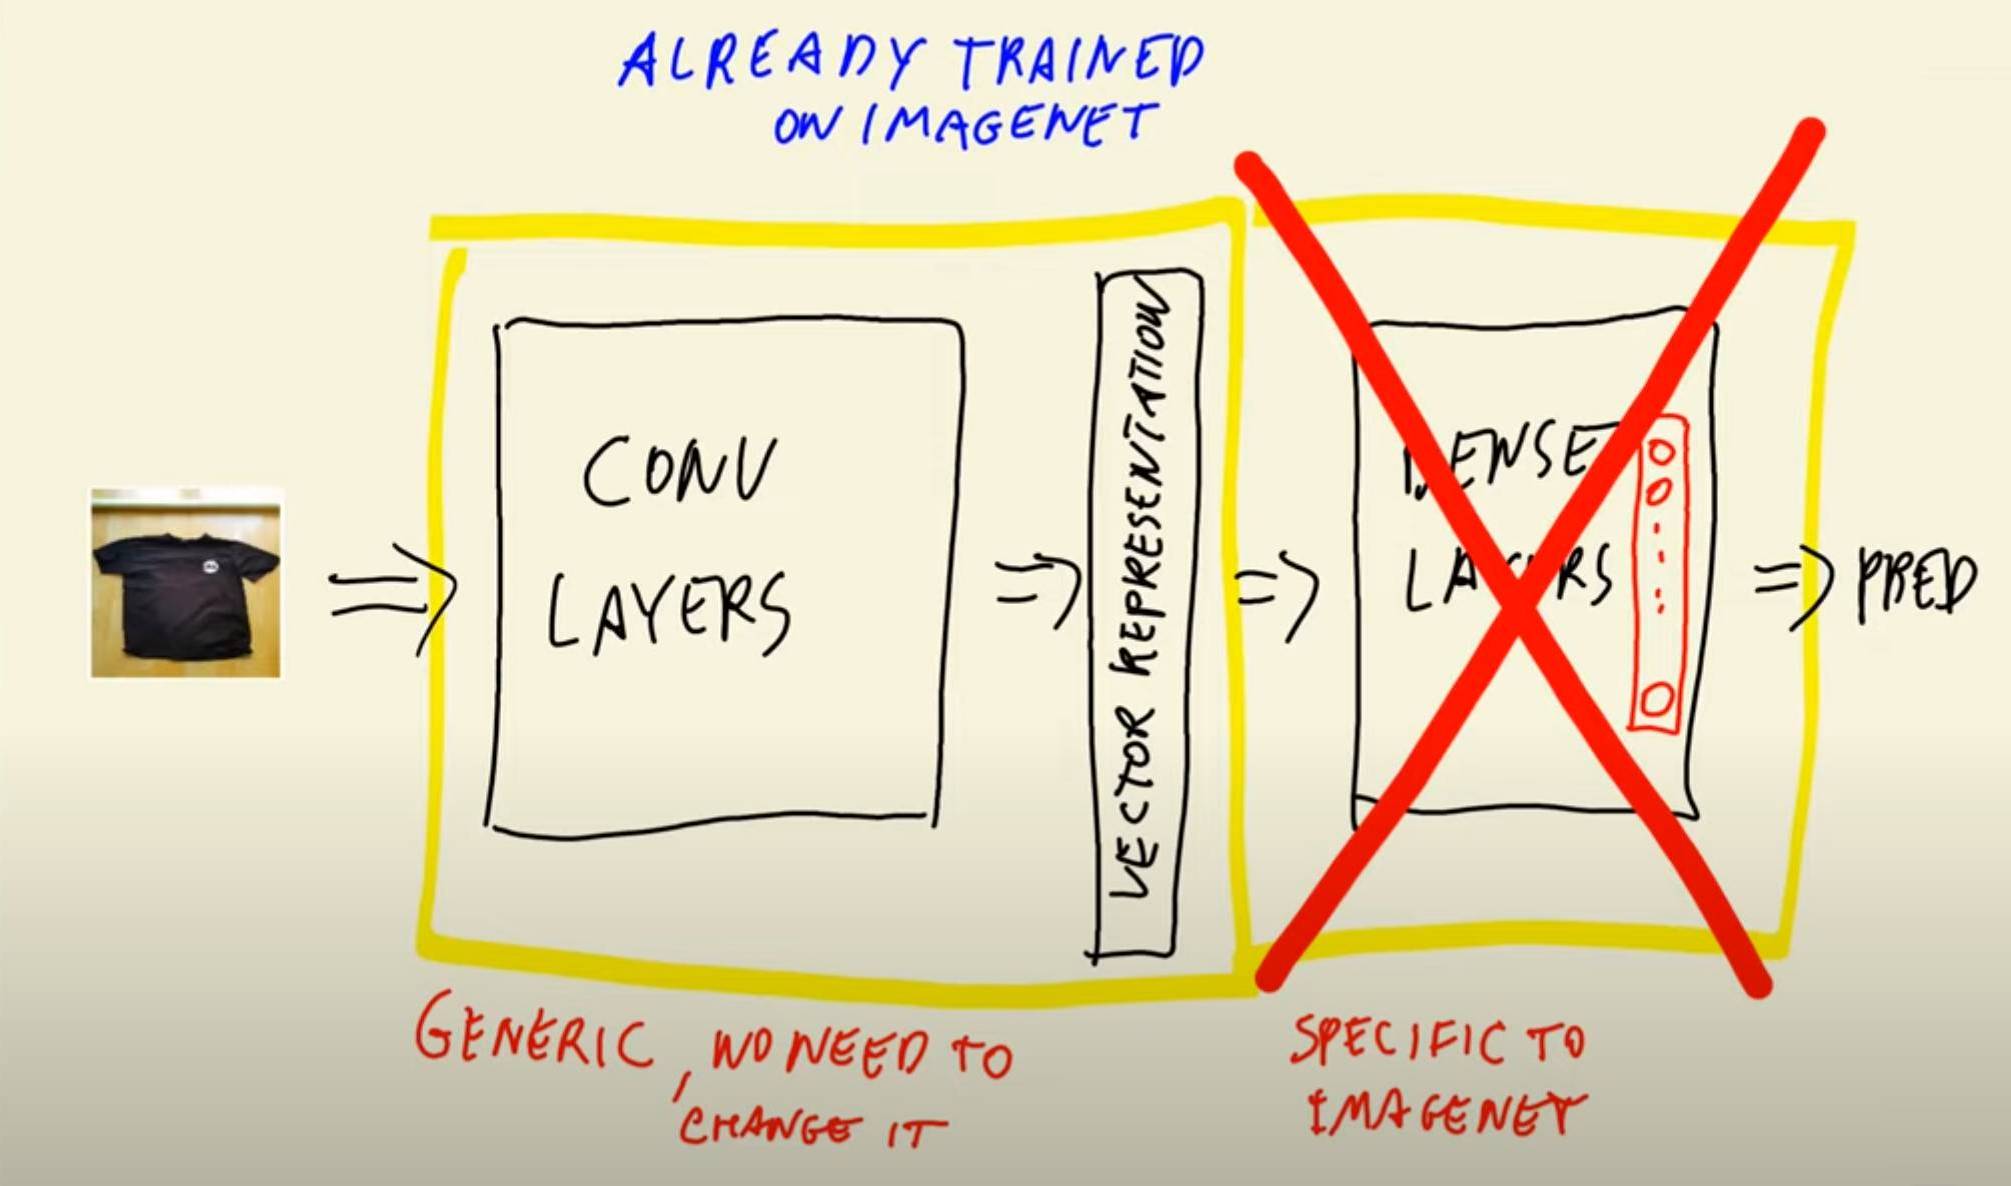 ALREADY TRAINED
ON IMAGENET
CONV
LAYERS
VECTOR REPRESENTATION
DENSE
LAYERS
PRED
GENERIC, NO NEED TO
CHANGE IT
SPECIFIC TO
IMAGENET